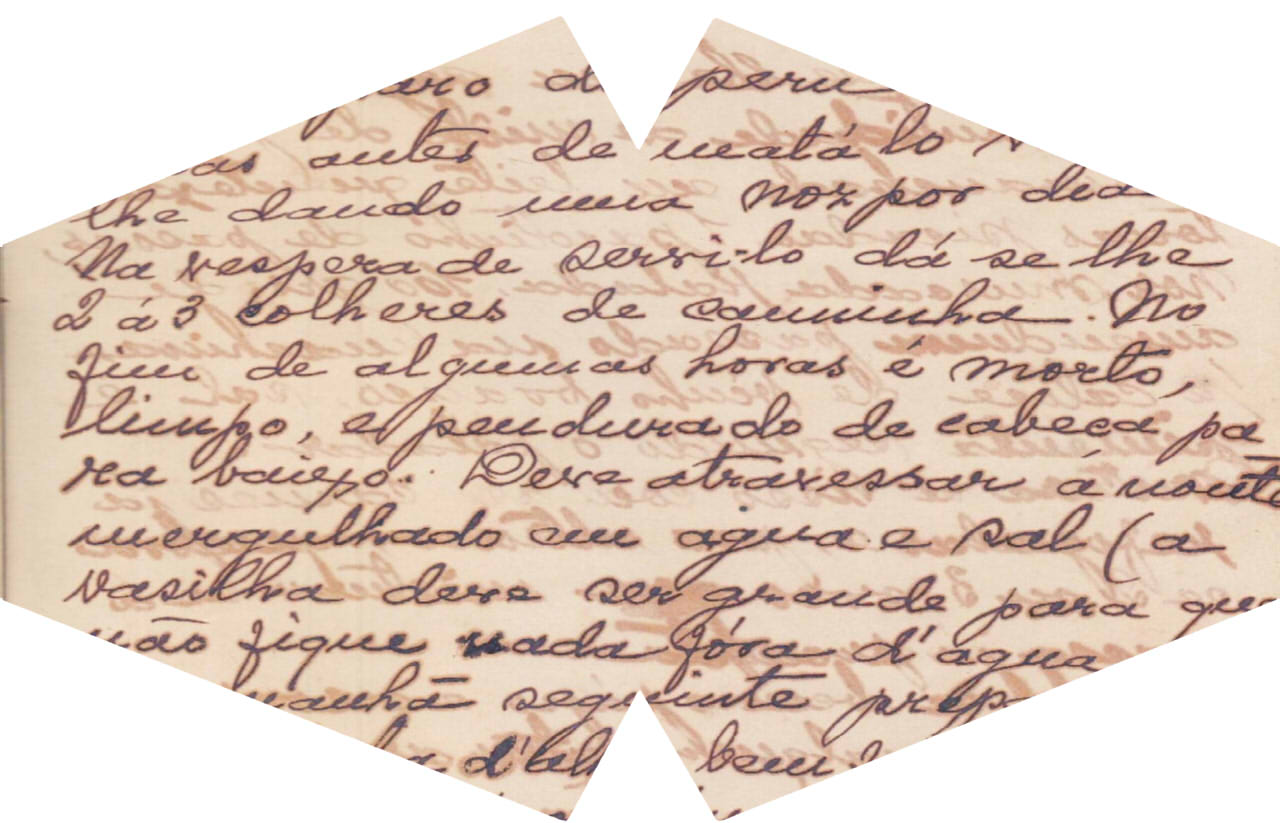 peru
antes de matá lo
lhe dando uma noz por dia
Na vespera de servi-lo dá se lhe
2 á 3 colheres de canninha. No
fim de algumas horas é morto,
limpo, e pendurado de cabeça pa
ra baixo. Deve atravessar á noute
mergulhado em agua e sal (a
vasilha deve ser grande para que
não fique nada fóra d'agua
manhã seguinte
bem